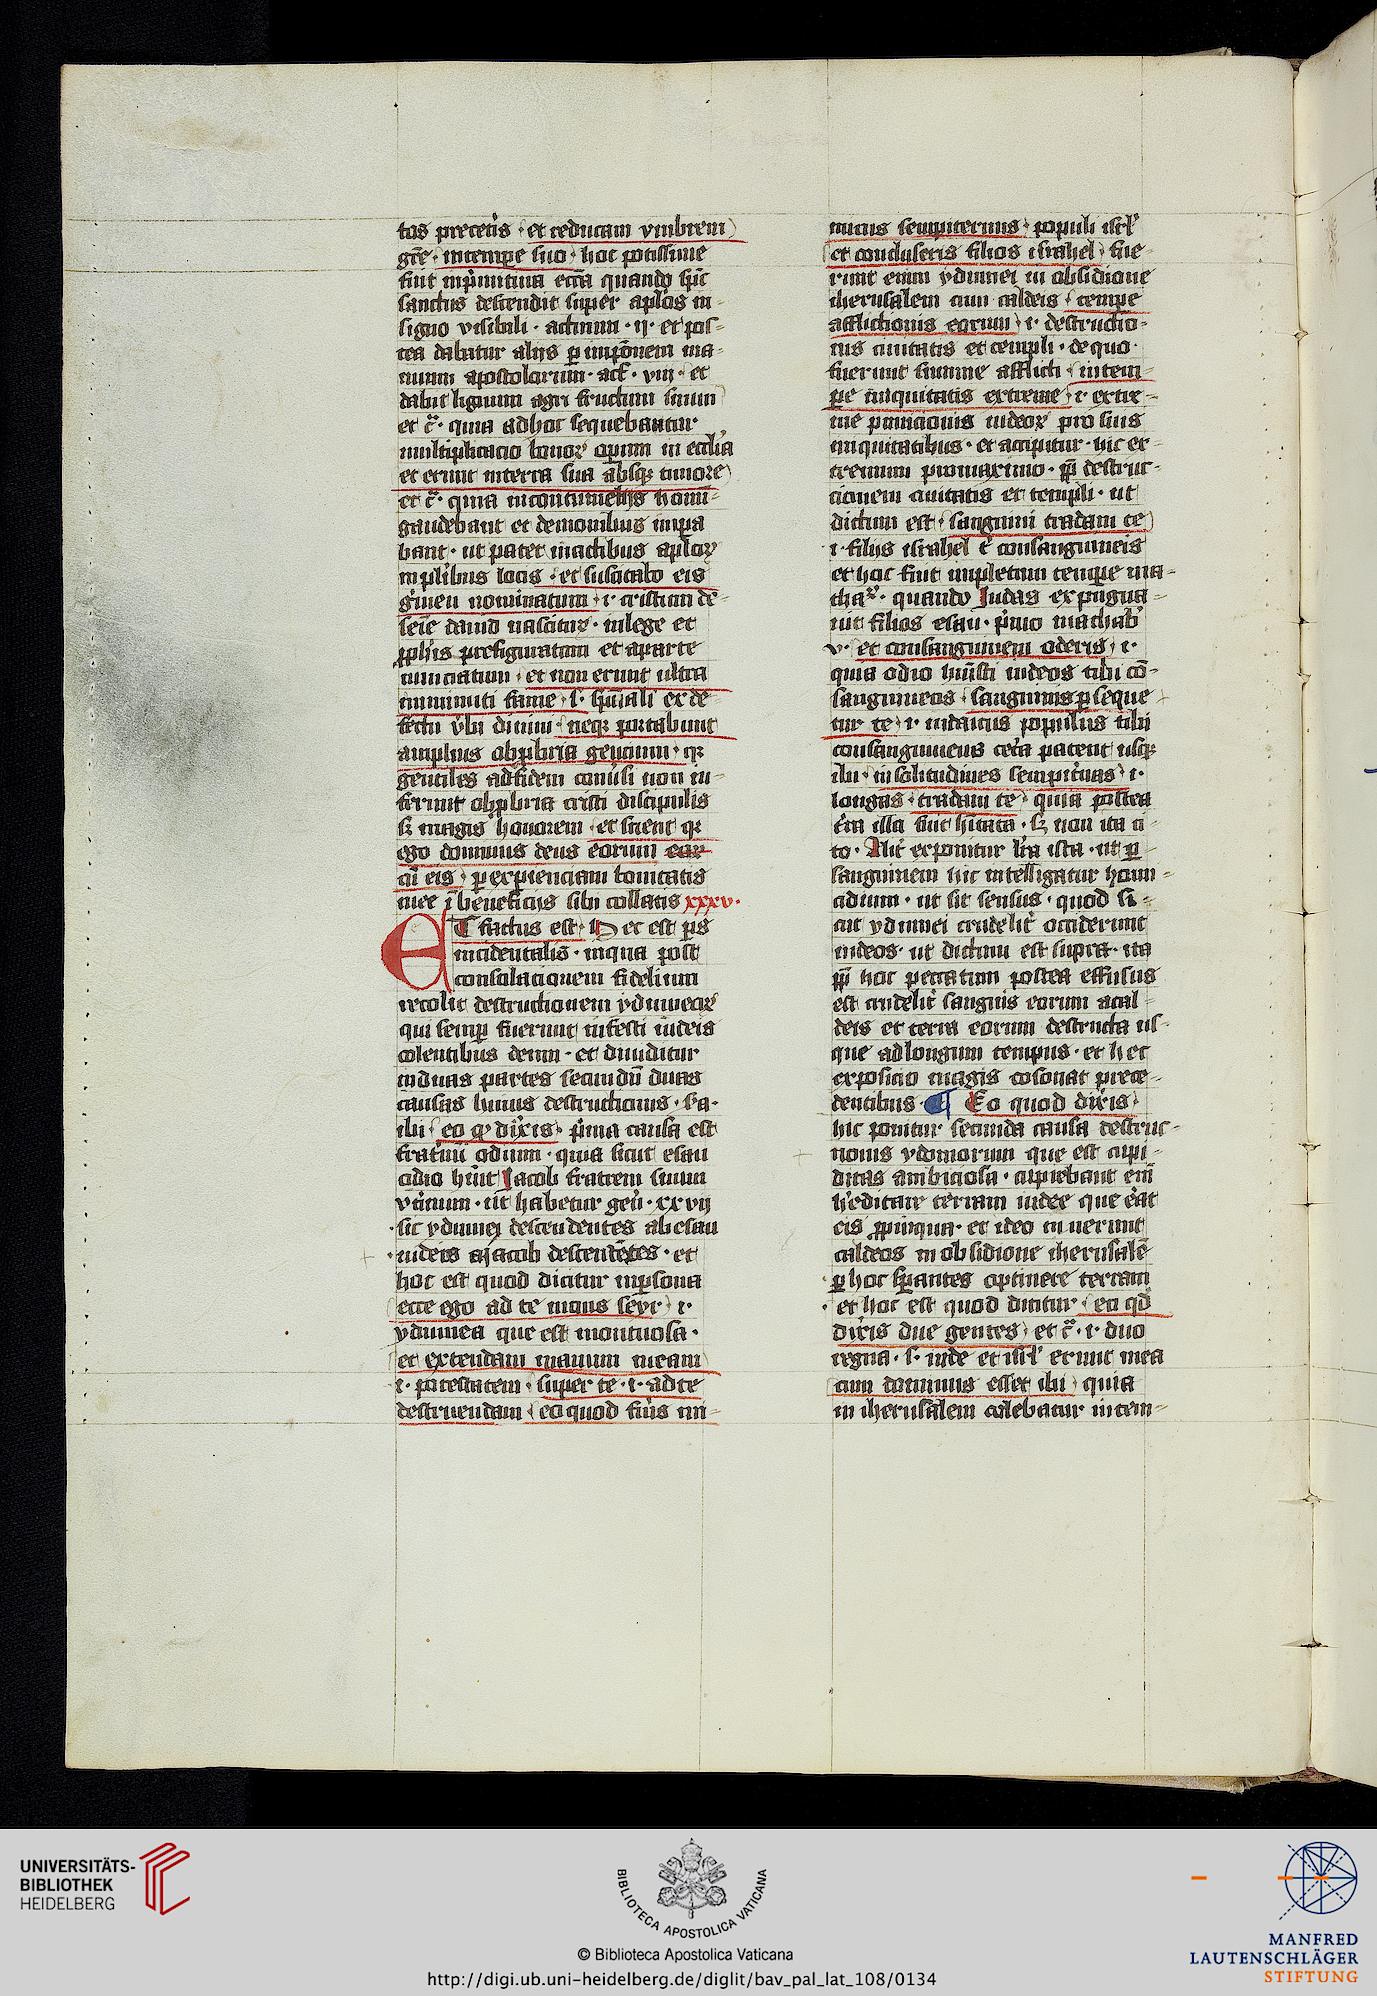 tos precer̄s · et reducam vmbrem
gr̄e · intempe suo · hoc potissime
fuit inp̄mitiua ecc̄a quando sp̄c
sanctus descendit super aplos in
signo visibili · actuum · ij · et pos-
tea dabatur alijs p̱ impōnem ma-
nuum apostolorum · act̄ · viij · et
dabit lignum agri fructum suum
et c̄ · quia adhoc sequebantur
multiplicacio bonoꝝ operum in ecclīa
et erunt interra sua absqꝫ timore
et c̄ · quia incontumelijs homi-
gaudebant et demonibus impa
bant · ut patet inactibus aploꝝ
in plībus locis · et suscitabo eis
ḡmen nominatum · i · cristum de
seīe dauid nascituꝝ · inlege et
ꝓphīs prefiguratum et aparte
nunciatum · et non erunt ultra
inminuti fame · s · sp̄uali ex de-
fectu v̄bi diuini · neqꝫ portabunt
amplius obꝓbria gencium · qꝛ
gentiles adfidem conūsi non in-
ferunt obꝓbria cristi discipulis
sꝫ magis honorem · et scient qꝛ
ego dominus deus eorum
cū eis · p̱ experienciam bonitatis
mee ī beneficijs sibi collatis xxxv ·
ET factus est · Hec est p̄s
incidentalis · inqua post
consolacionem fidelium
recolit destructionem ydumeoꝝ
qui semp̱ fuerunt infesti iudeis
colentibus deum · et diuiditur
induas partes secundū duas
causas huius destructionis · s̄a ·
ibi · eo ꝙ dix̄is · p̄ma causa est
frat̄nū odium · quia sicut esau
odio hūit Jacob fratrem suum
vt̄inum · ut̄ habetur geñ · xxvij
· sic ydumei descendentes abesau
· iudeis aiacob descendētes · et
hoc est quod dicitur inp̱sona
ecce ego ad te mons seyr · i ·
ydumea que est montuosa ·
et extendam manum meam
· i · potestatem · super te · i · adte
destruendam · eo quod fu̇is ini-
micus sempiternus · populi isrł
et concluseris filios israhel · fue-
runt enim ydumei in obsidione
iherusalem cum caldeis · tempe
afflictionis eorum · i · destructio-
nis ciuitatis et templi · de quo
fuerunt summe afflicti · intem-
pe iniquitatis extreme · i · extre-
me punicionis iudeoꝝ pro suis
iniquitatibus · et accipitur · hic ex-
tremum promaximo · ꝓp̄ destruc-
cionem ciuitatis et templi · ut
dictum est · sanguini tradam te
· i · filijs israhel t̄ consanguineis
et hoc fuit impletum tempe ma-
thaꝝ · quando Judas expugna-
uit filios esau · p̄mo mathab̄
v · et consanguinem oderis · i ·
quia odio hūisti iudeos tibi cō-
sanguineos · sanguinis p̱seque
tur te · i · iudaicus populus tibi
consanguineus cet̄a patent usqꝫ
ibi · in solitudines sempit̄nas · i ·
longas · tradam te · quia postea
t̄ra illa fuit hītata · sꝫ non ita ci
to · Alit̄ exponitur lr̄a ista · ut p̱
sanguinem hic intelligatur homi-
cidium · ut sit sensus · quod si-
cut ydumei crudelit̄ occiderunt
iudeos · ut dictum est supra · ita
ꝓp̄ hoc peccatum postea effusus
est crudelit̄ sanguis eorum acal-
deis et terra eorum destructa us-
que adlongum tempus · et hec
exposicio magis cōsonat prece-
dentibus · ¶ Eo quod dixis̄
hic ponitur secunda causa destruc-
nonis ydomorum que est cupi-
ditas ambiciosa · cupiebant em̄
h̄editare terram iudee que erat
eis ꝓpinqua · et ideo iuuerunt
caldeos in obsidione iherusalē
p̱ hoc sp̱antes optinere terram
· et hoc est quod dicitur · eo qd̄
dix̄is due gentes · et c̄ · i · duo
regna · s · iude et isrł erunt mea
cum dominus esset ibi · quia
in iherusalem colebatur intem-
UNIVERSITÄTS-
BIBLIOTHEK
HEIDELBERG
BIBLIOTECA APOSTOLICA VATICANA
© Biblioteca Apostolica Vaticana
http://digi.ub.uni-heidelberg.de/diglit/bav_pal_lat_108/0134
MANFRED
LAUTENSCHLÄGER
STIFTUNG